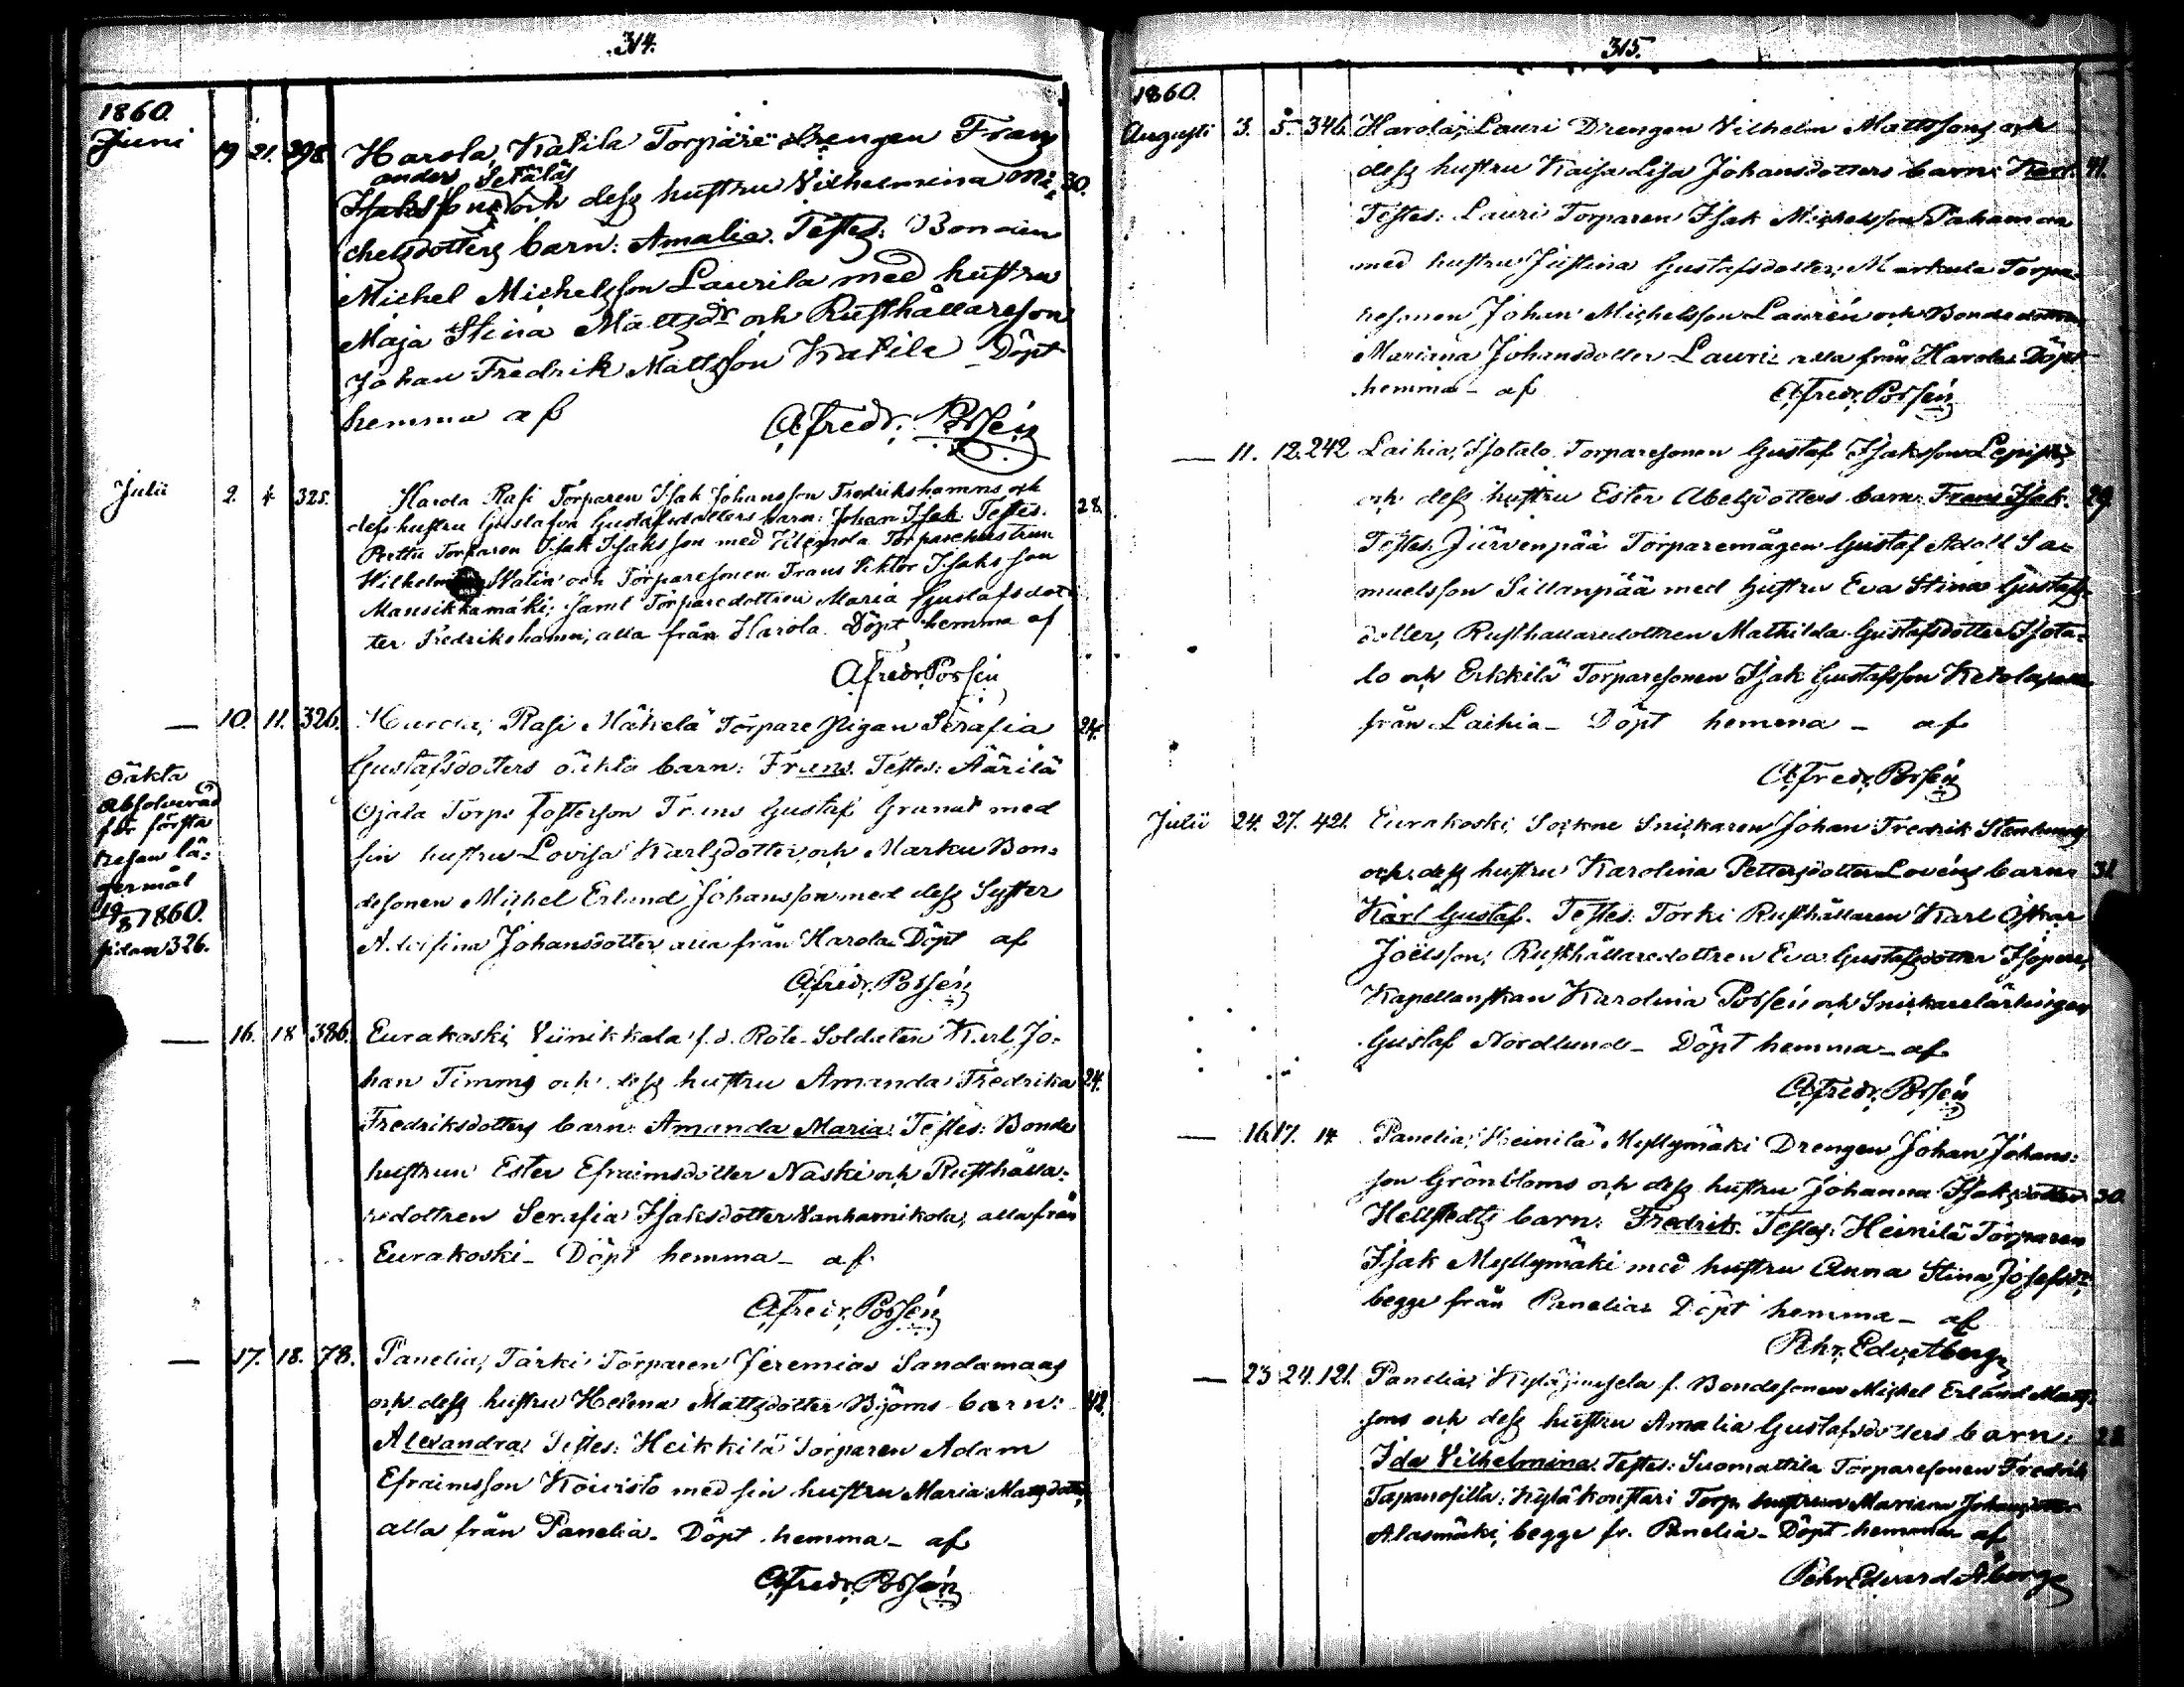 314.
1860.
Juni 19 21. 298. Harola, Katila Torpare drengen Frans
ander Setäläs
Isakssons och dess hustru Vilhelmina Mi- 30.
chelsdotters barn: Amalia. Testes: Bonden
Michel Michelsson Laurila med hustru
Maja Stina Mattsdr och Rusthållareson
Johan Fredrik Mattsson Katila Döpt
hemma af Afredr. Possén
Julii 2. 4. 325. Harola Rasi Torparen Isak Johansson Fredrikshamns och 28.
dess hustru Gustafva Gustafsdotters barn: Johan Isak. Testes.
Perttu Torparen Isak Isaksson med Torparehustrun
Wilhelmina Walin och Torparesonen Frans Viktor Isaksson
Mansikkamäki; samt Torparedottren Maria Gustafsdot-
ter Fredrikshamn; alla från Harola. Döpt hemma af
Afredr. Possén
— 10. 11. 326. Harola, Rasi Mäkelä Torpare Pigan Serafia 24.
Gustafsdotters oäkta barn: Frans. Testes: Äärilä
Ojala Torps fosterson Frans Gustaf Granat med
sin hustru Lovisa Karlsdotter och Marku Bon-
desonen Michel Erland Johansson med dess Syster
Johansdotter alla från Harola Döpt af
Afredr. Possén
Oäkta
absolverad
för första
resan lä-
germål
19/8 1860.
sidan 326.
— 16. 18 386. Eurakoski, Viinikkala f.d. Rote-Soldaten Karl Jo-
han Timms och dess hustru Amanda Fredrika 24.
Fredriksdotters barn: Amanda Maria. Testes: Bonde
hustrun Ester Efraimsdotter Naski och Rusthålla-
redottren Serafia Isaksdotter Vanhamikola, alla från
Eurakoski – Döpt hemma – af
Afredr. Possén
— 17. 18. 78. Panelia, Tärki Torparen Jeremias Sandamaas
och dess hustru Helena Mattsdotter Björns barn: 42.
Alexandra. Testes: Heikkilä Torparen Adam
Efraimsson Koivisto med sin hustru Maria Matsdotter,
alla från Panelia. Döpt hemma – af
Afredr. Possén
315.
1860.
Augusti 3. 5. 346. Harola, Lauri Drengen Vilhelm Mattssons och
dess hustru Kaisa Lisa Johansdotters barn: Karl. 41.
Testes: Lauri Torparen Isak Michelsson Pahamaa
med hustru Justina Gustafsdotter; Markula Torpa-
resonen Johan Michelsson Laurén och Bondedottren
Mariana Johansdotter Lauri alla från Harola Döpt
hemma – af Afredr. Possén
— 11. 12. 242 Laihia, Isotalo Torparesonen Gustaf Isaksson Lepistö
och dess hustru Ester Abelsdotters barn: Frans Isak. 29.
Testes: Järvenpää Torparemågen Gustaf Adolf Sa-
muelsson Sillanpää med hustru Eva Stina Gustafs-
dotter, Rusthållaredottren Mathilda Gustafsdotter Isota-
lo och Erkkilä Torparesonen Isak Gustafsson Ketola, alla
från Laihia – Döpt hemma – af
Afredr. Possén
Julii 24. 27. 421. Eurakoski, Sockne Snickaren Johan Fredrik Stenlunds
och dess hustru Karolina Pettersdotter Lovéns barn: 31
Karl Gustaf. Testes: Torki Rusthållaren Karl Oskar
Joëlsson; Rusthållaredottren Eva Gustafsdotter Isoperä,
Kapellanskan Karolina Possén och Snickarelärlingen
Gustaf Nordlund – Döpt hemma – af
Afredr. Possén
— 16 17. 14 Panelia, Heinilä Myllymäki Drengen Johan Johans-
son Grönbloms och dess hustru Johanna Isaksdotter 30.
Hellstedts barn: Fredrik. Testes: Heinilä Torparen
Isak Myllymäki med hustru Anna Stina Josefsdr,
begge från Panelia Döpt hemma – af
Pehr. Edv. Åberg
— 23 24. 121. Panelia, f. Bondesonen Michel Erland Matts-
sons och dess hustru Amalia Gustafsdotters barn: 28
Ida Vilhelmina. Testes: Suomattila Torparesonen Fredrik
Tapanosilla: Kyläkonstari Torp. hustrun Mariana Johansdotter
Alasmäki, begge fr. Panelia – Döpt hemma af
Pehr Edvard Åberg